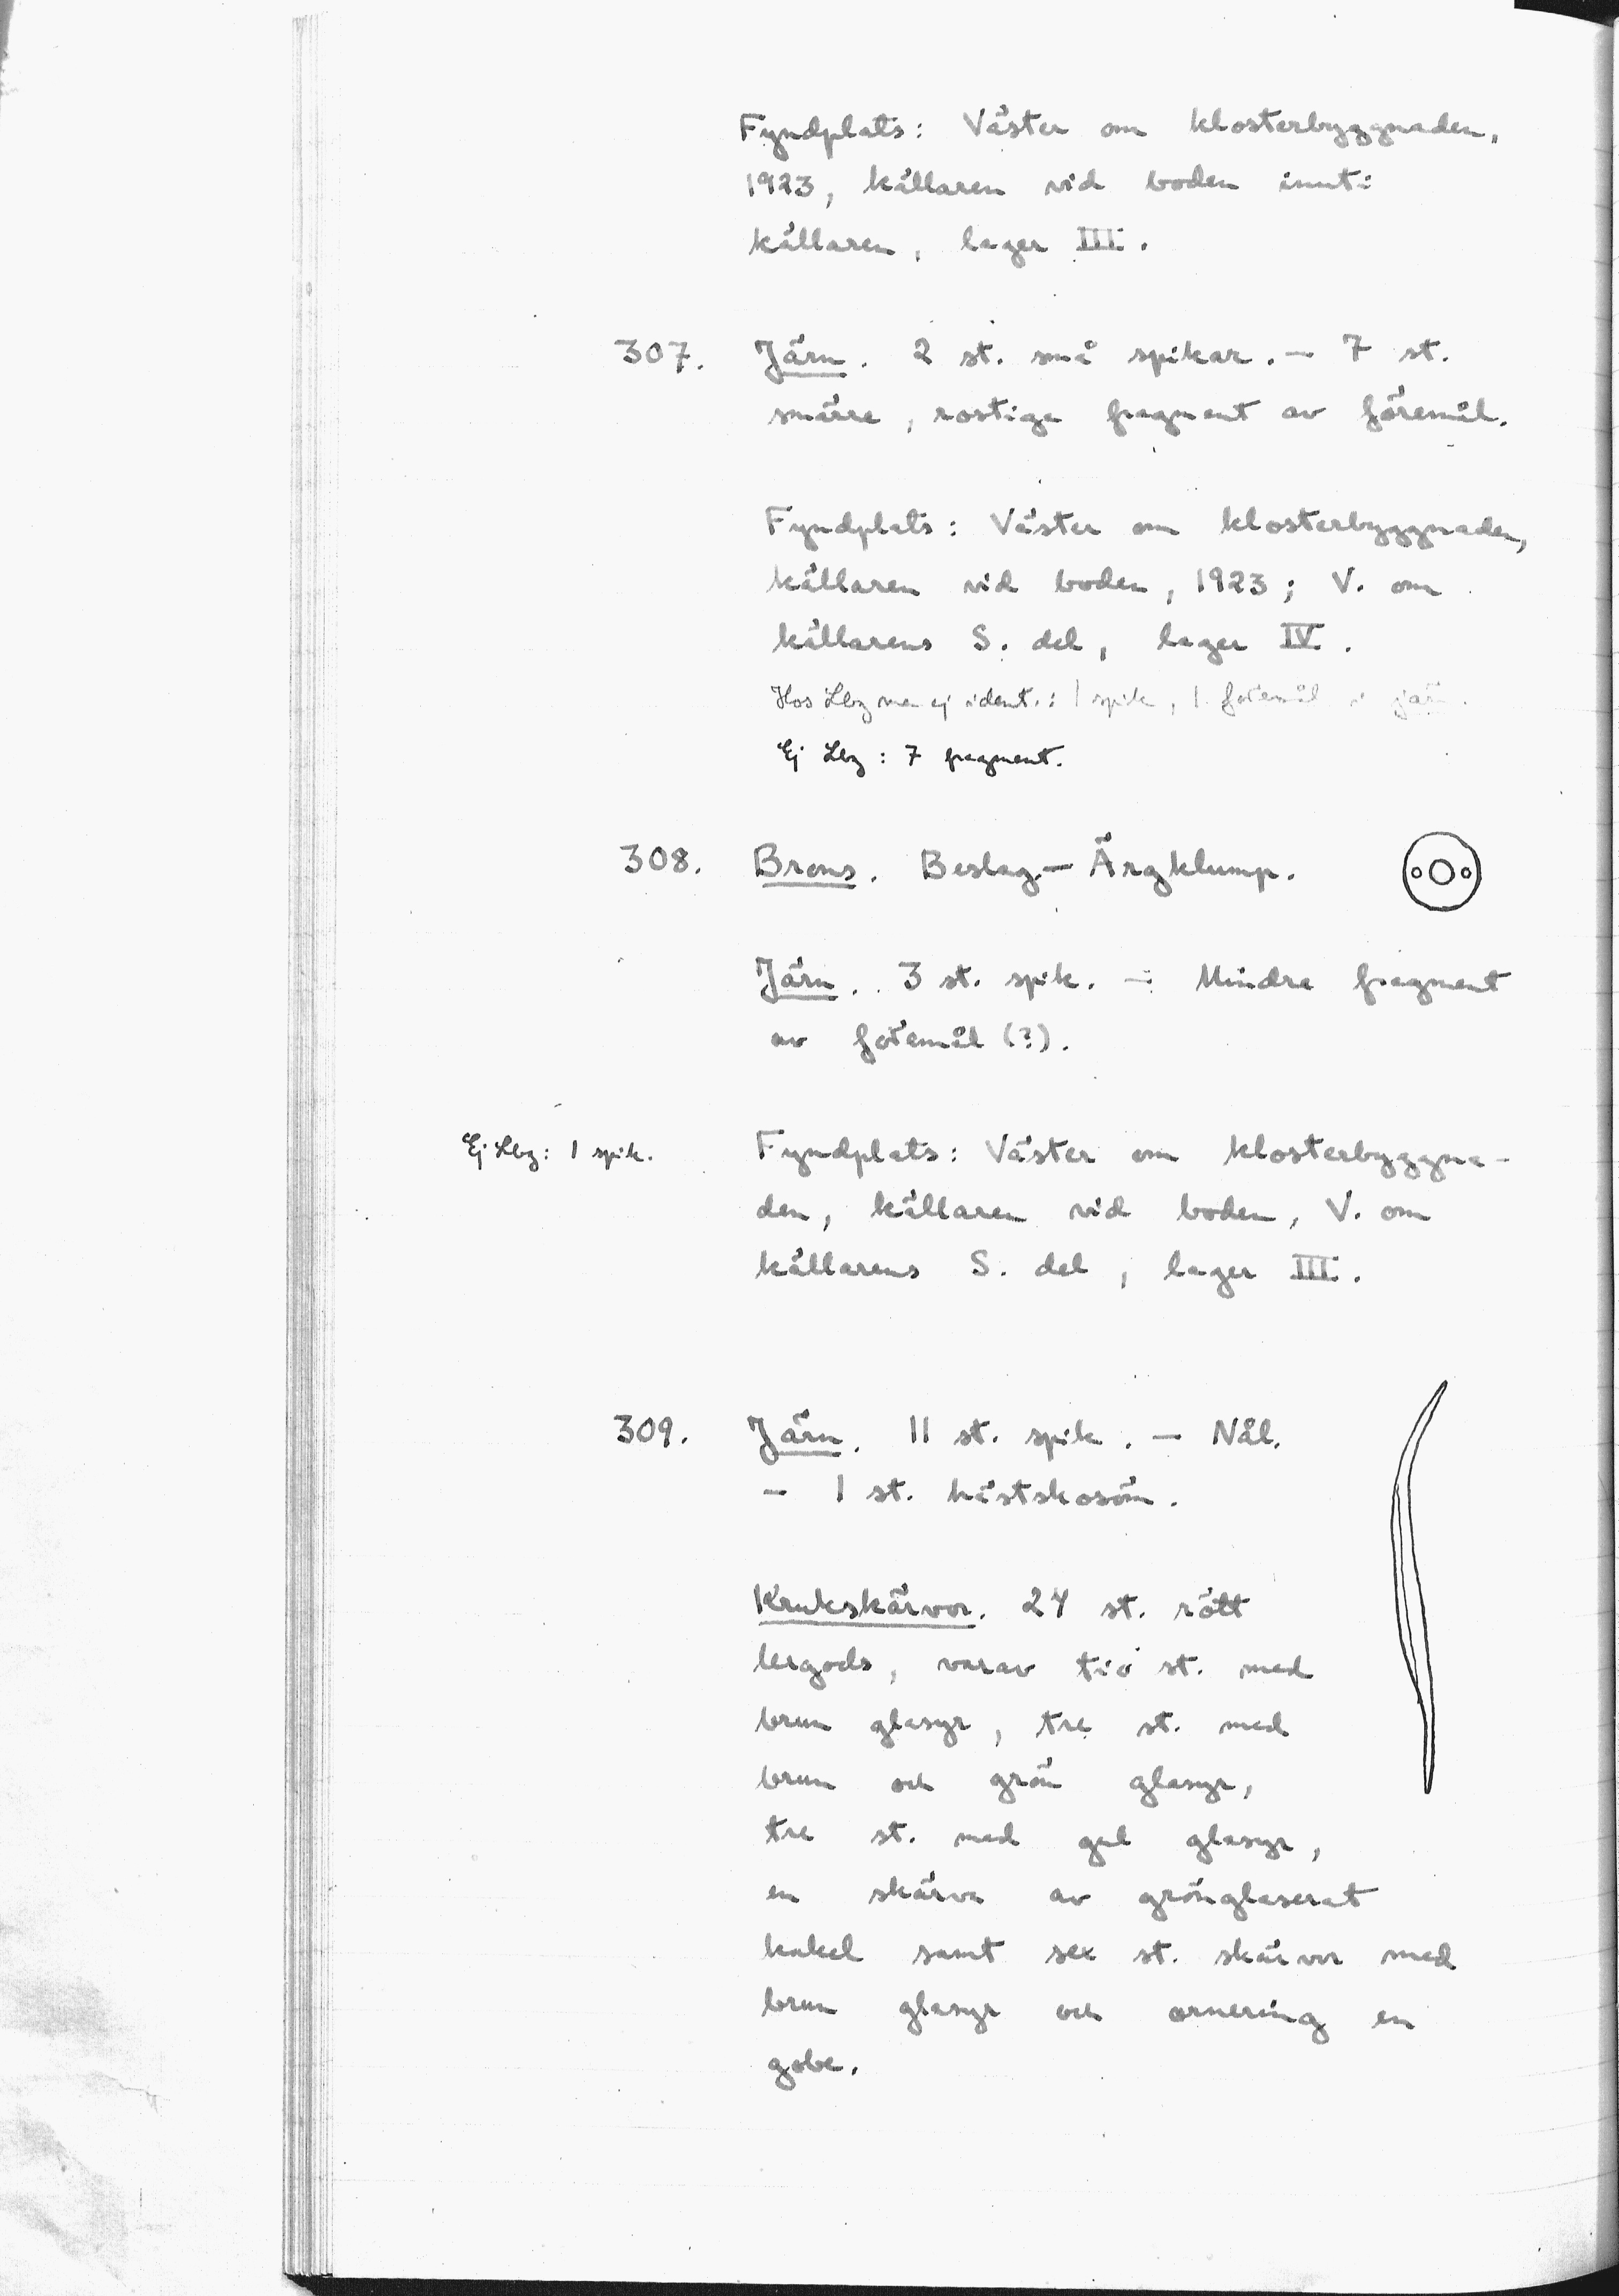 Fyndplats: Väster om klosterbyggnaden,
1923, källaren vid boden inuti
källaren, lager III.
307. Järn. 2 st. små spikar. — 7 st.
smärre, rostiga fragment av föremål.
Fyndplats: Väster om klosterbyggnaden,
källaren vid boden, 1923; V. om
källarens S. del, lager IV.
Hos Lbg men ej ident.: 1 spik, 1 föremål i järn.
Ej Lbg: 7 fragment.
308. Brons. Beslag. — Ärgklump.
Järn. 3 st. spik. — Mindre fragment
av föremål (?).
Ej Lbg: 1 spik. Fyndplats: Väster om klosterbyggna-
den, källaren vid boden, V. om
källarens S. del, lager III.
309. Järn. 11 st. spik. — Nål.
— 1 st. hästskosöm.
Krukskärvor. 24 st. rött
lergods, varav tio st. med
brun glasyr, tre st. med
brun och grön glasyr,
tre st. med gul glasyr,
en skärva av grönglaserat
kakel samt sex st. skärvor med
brun glasyr och ornering en
gobe.